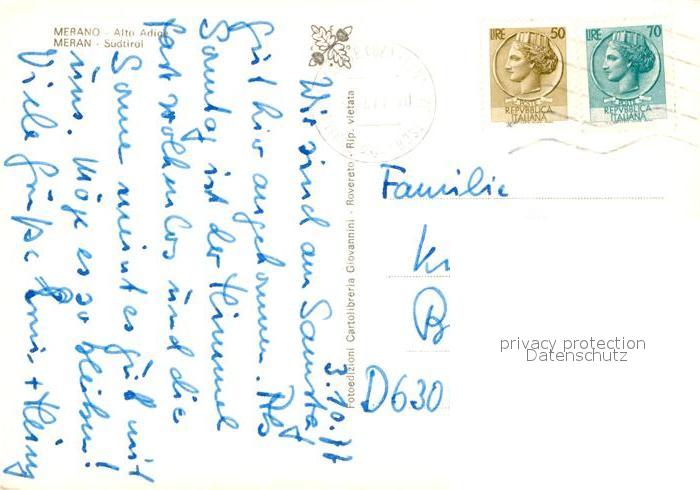 MERANO - Alto Adige
MERAN - Südtirol
3.10.77
Wir sind am Samstag
gut hier angekommen. Ab
Sonntag ist der Himmel
fast wolkenlos und die
Sonne meint es gut mit
uns. Möge es so bleiben!
Viele Grüße + Heinz
Fotoedizioni Cartolibreria Giovannini - Rovereto - Rip. vietata
LIRE 50
POSTE
REPVBBLICA
ITALIANA
LIRE 70
POSTE
REPVBBLICA
ITALIANA
Familie
Kr
B
D630
privacy protection
Datenschutz